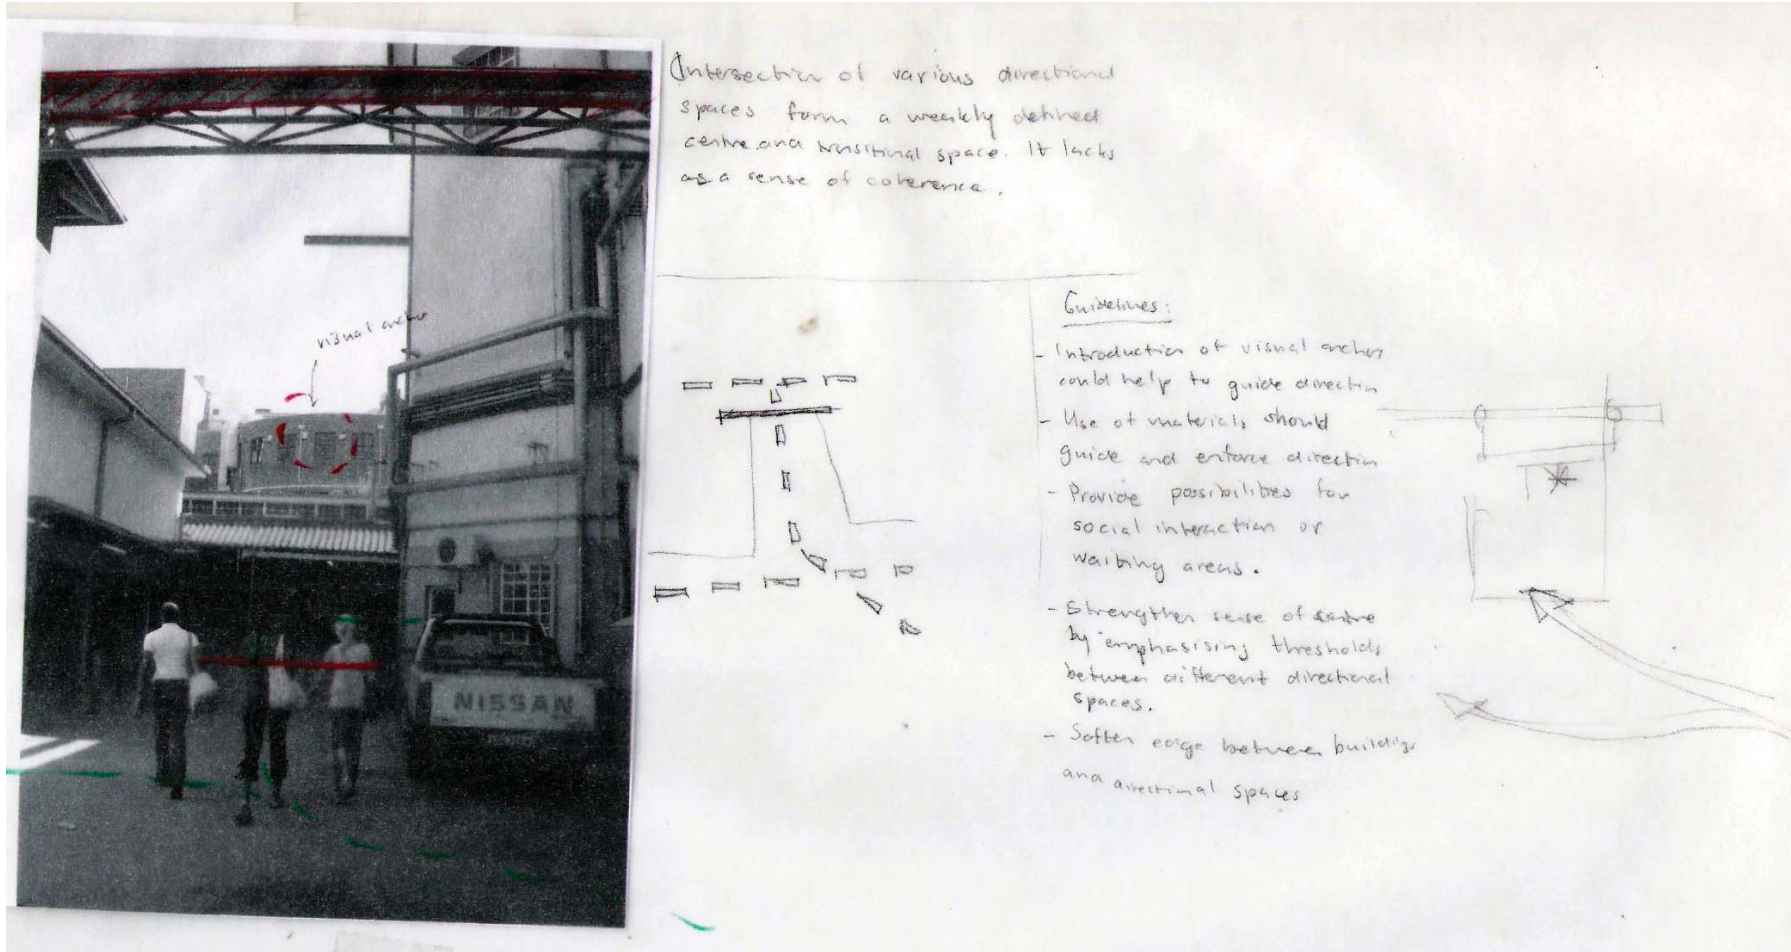 Intersection of various directional
spaces form a weakly defined
centre and transitional space. It lacks
as a sense of coherence.
visual anchor
NISSAN
Guidelines:
- Introduction of visual anchor
could help to guide direction
- Use of materials should
guide and enforce direction
- Provide possibilities for
social interaction or
waiting areas.
- Strengthen sense of centre
by emphasising thresholds
between different directional
spaces.
- Soften edge between buildings
and directional spaces